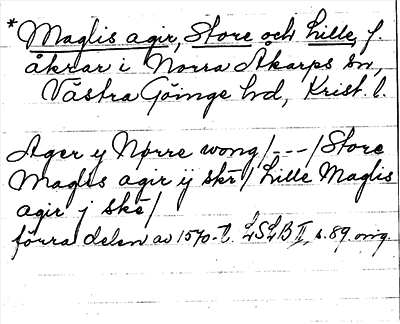 * Maglis agir, Store och Lille, f.
åkrar i Norra Åkarps sn,
Västra Göinge hd, Krist. l.
Ager y Nørre wong/---/Store
Maglis agir ij skr/ Lille Maglis
agir j skr/
förra delen av 1570-t. LSLB II, s.89 orig.